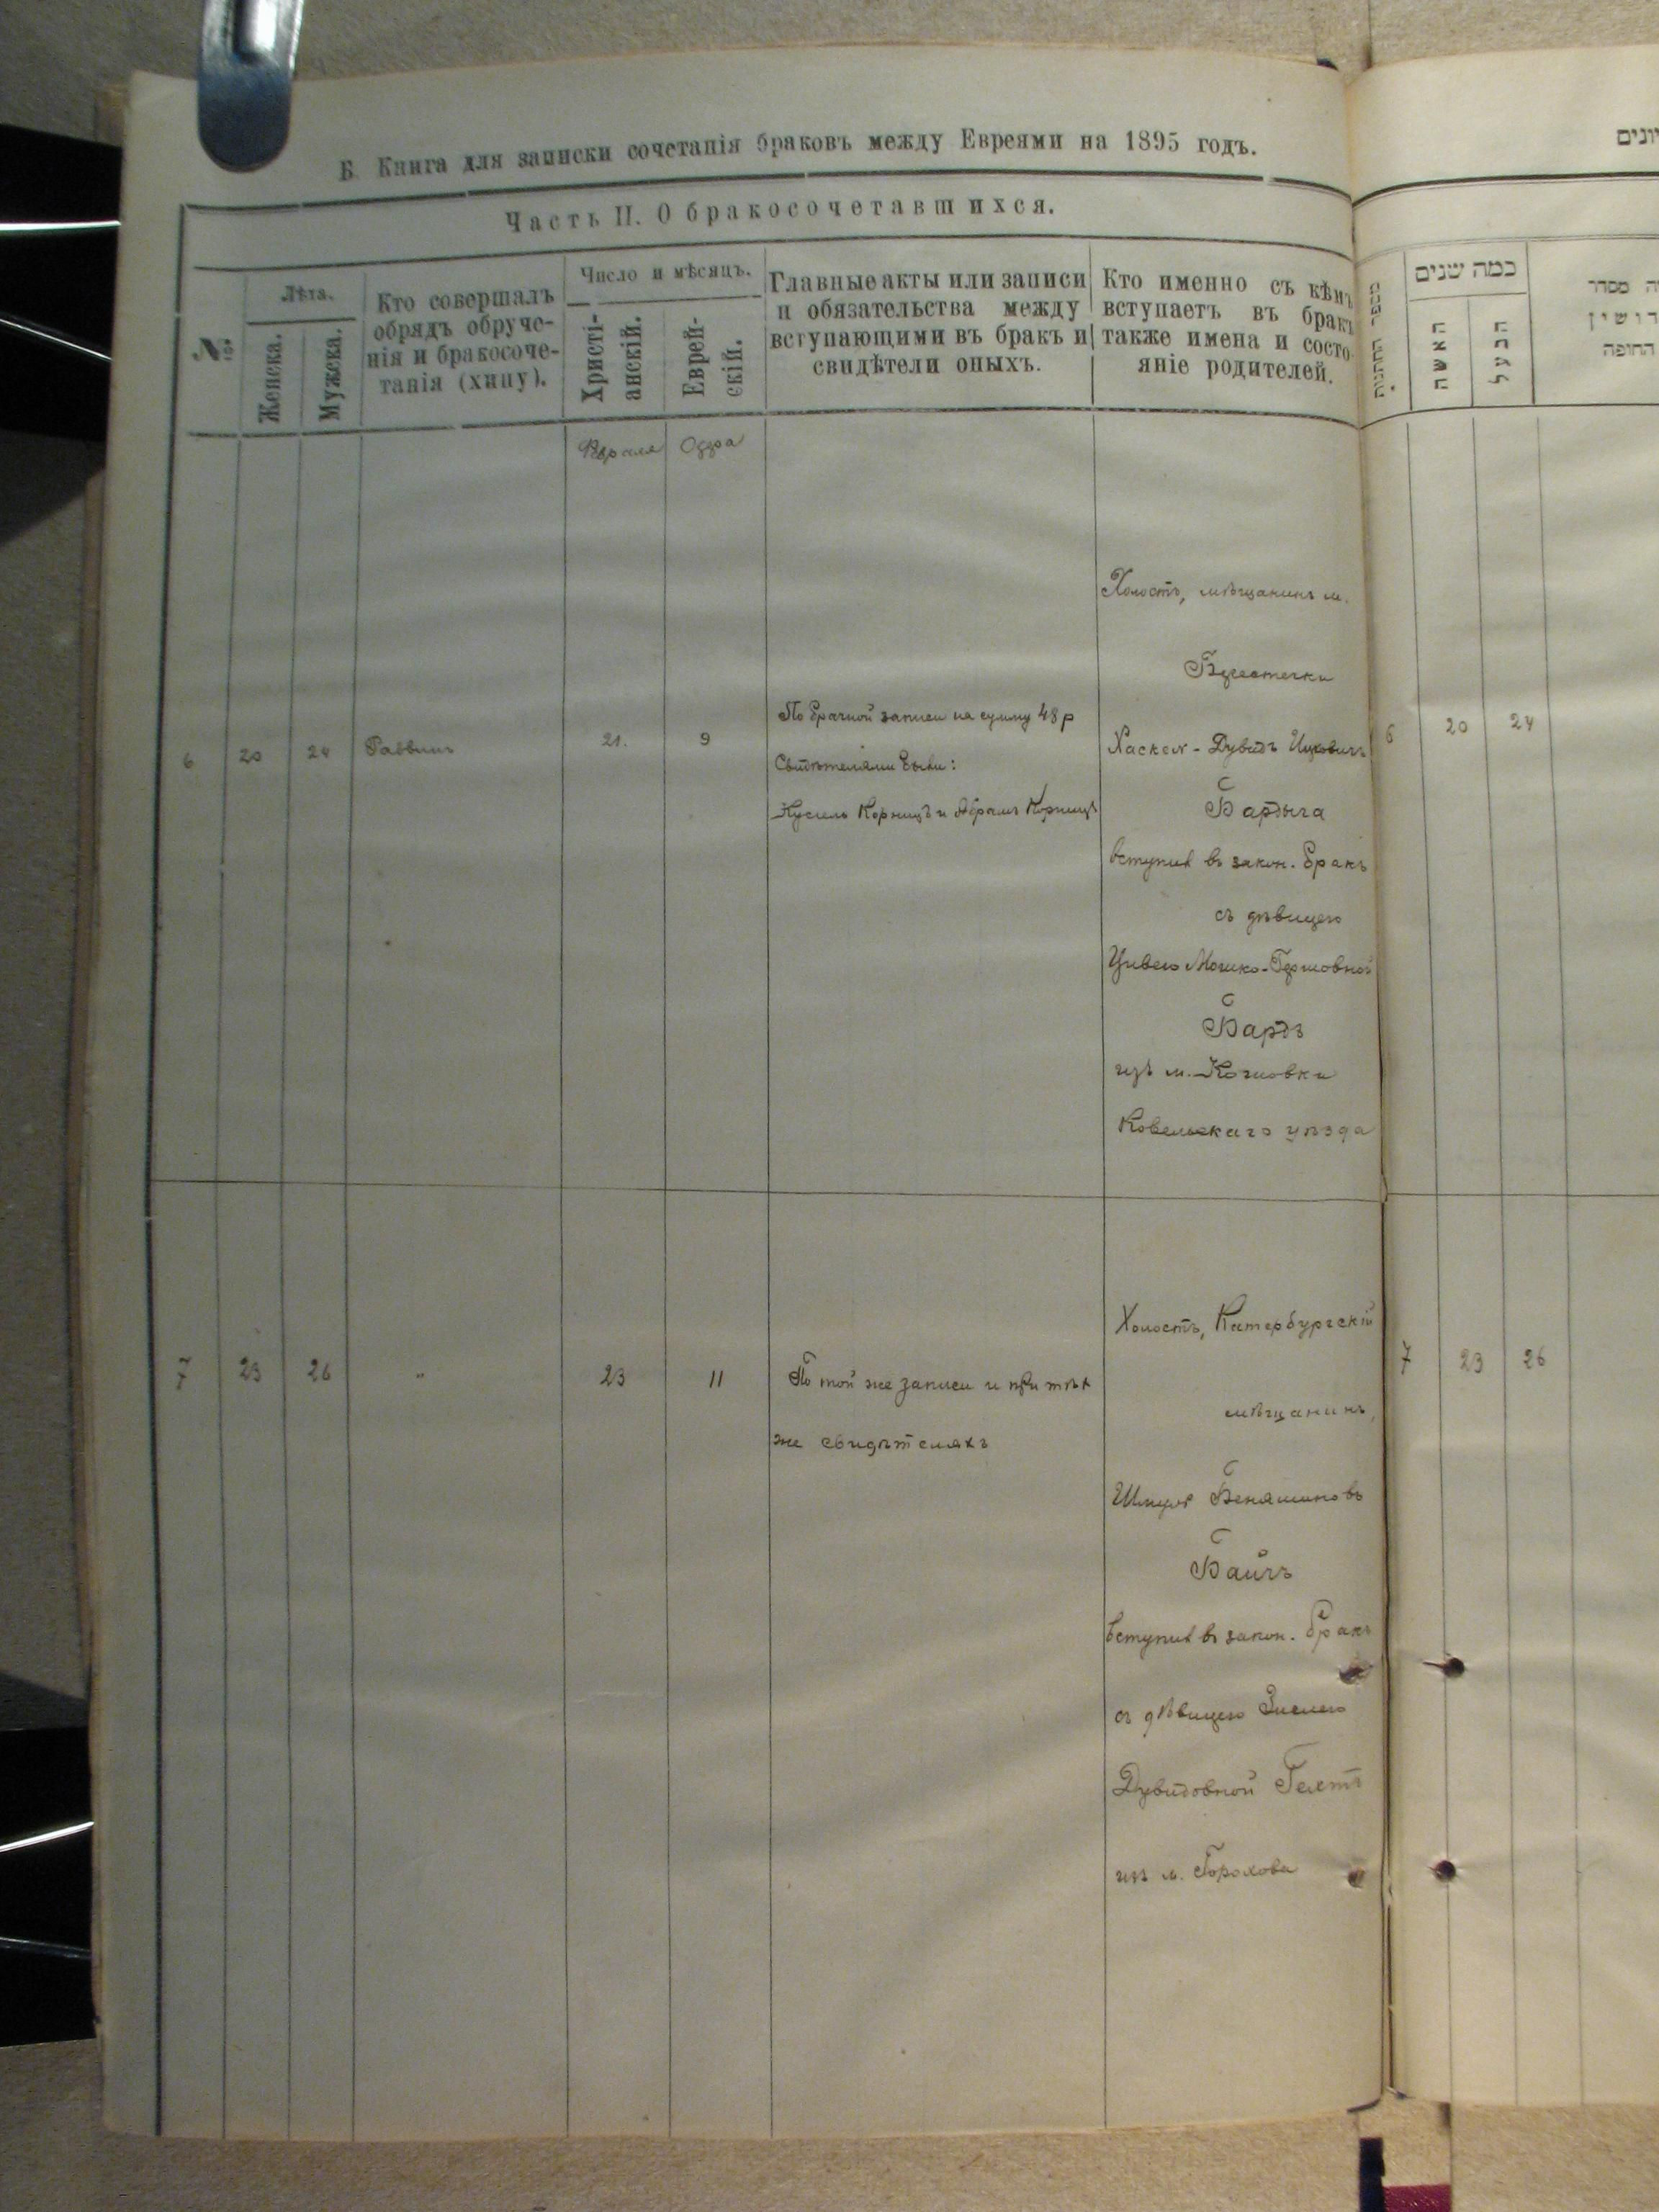 Б. Книга для записки сочетанія браковъ между Евреями на 1895 годъ.
Часть II. О бракосочетавшихся.
№
Лѣта.
Женска.
Мужска.
Кто совершалъ
обрядъ обруче-
нія и бракосоче-
танія (хипу).
Число и мѣсяцъ.
Христі-
анскій.
Еврей-
скій.
Главные акты или записи
и обязательства между
вступающими въ бракъ и
свидѣтели оныхъ.
Кто именно съ кѣмъ
вступаетъ въ бракъ
также имена и состо-
яніе родителей.
Февраля
6
20
24
Раввинъ
21.
9
По брачной записи на сумму 48 р
Свидѣтелями были:
Кусиль Корницъ и Абрамъ Корницъ
Холостъ, мѣщанинъ м.
Берестечки
Хаскел - Дувидъ Ицковичъ
Бардыга
вступил въ закон. бракъ
съ дѣвицею
Цивею Мошко-Гершовной
Бардъ
изъ м.
Ковельскаго уѣзда
7
23
26
"
23
11
По той же записи и при тѣх
же свидѣтеляхъ
Холостъ, Катербургскій
мѣщанинъ,
Шмуль Беняминовъ
вступил въ закон. бракъ
съ дѣвицею Зислею
Дувидовной
изъ м. Горохова
יונים
מספר החתונות
כמה שנים
האשה
הבעל
מסדר
החופה
6
20
24
7
23
26